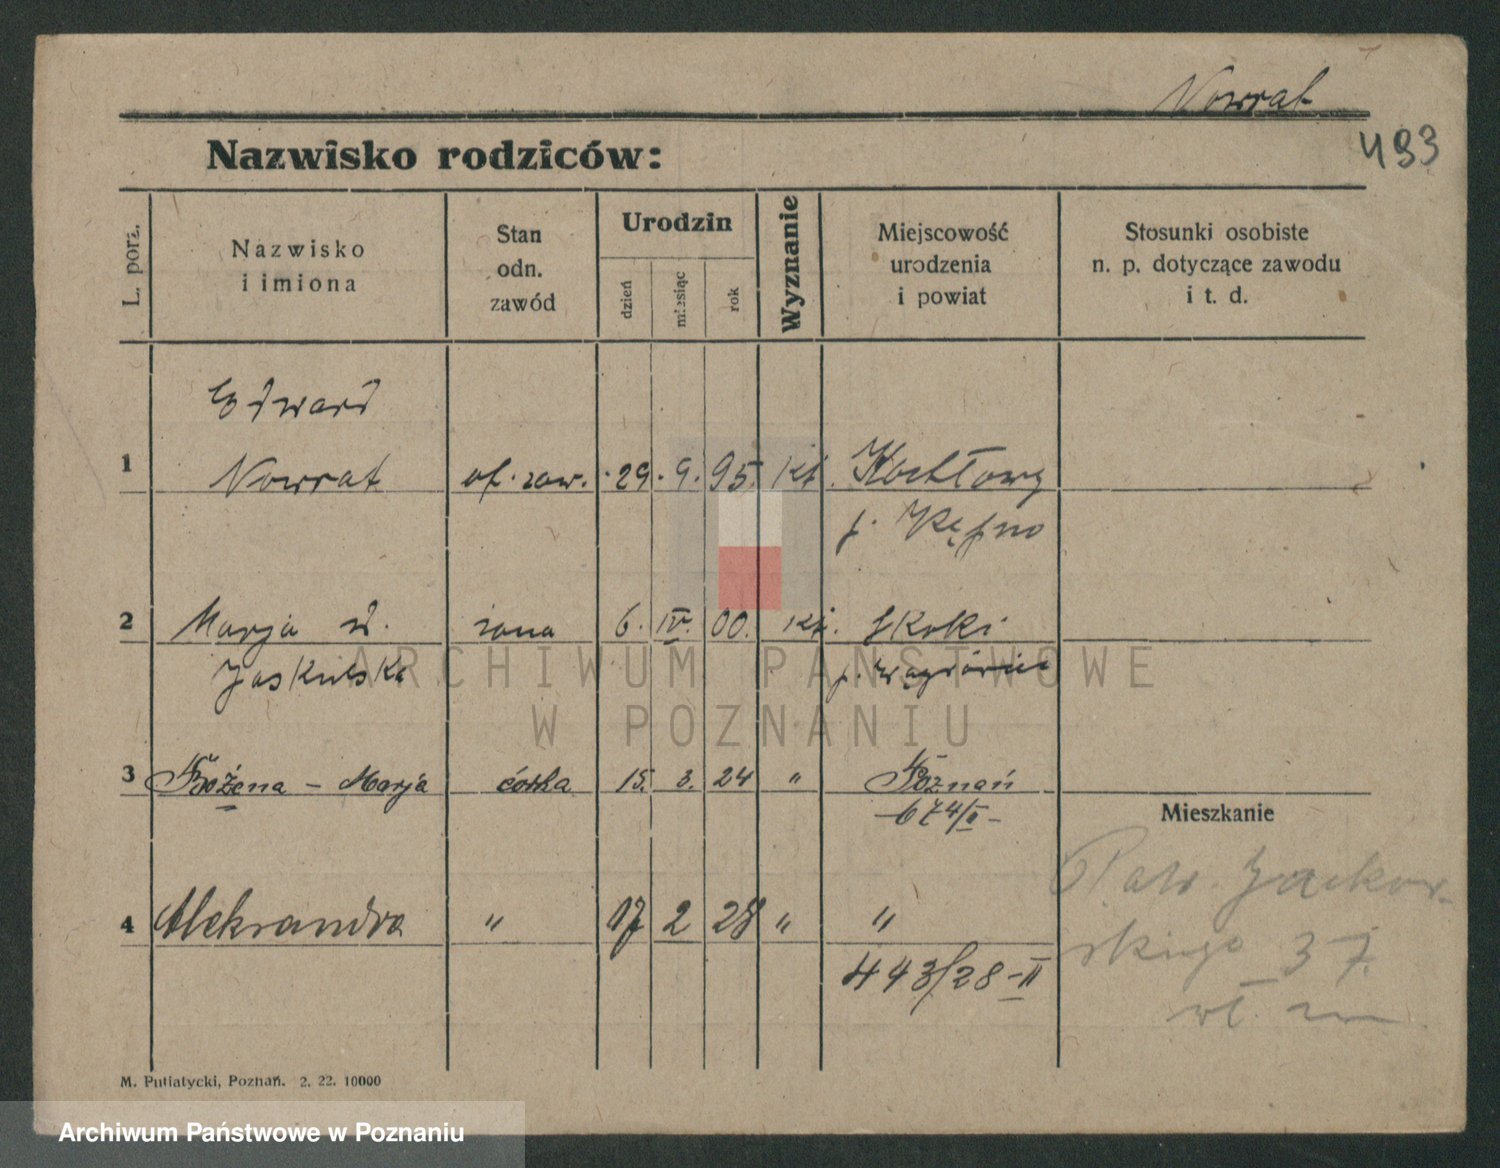 Nowrat
493
Nazwisko rodziców:
L. porz.
Nazwisko
i imiona
Stan
odn.
zawód
Urodzin
dzień
miesiąc
rok
Wyznanie
Miejscowość
urodzenia
i powiat
Stosunki osobiste
n. p. dotyczące zawodu
i t. d.
Edward
1 Nowrat of. zaw. 29. 9. 95. kt. Kochłowy
p. Kępno
2 Marja żona 6. IV. 00. kt. Skoki
Jaskulska
3 Bożena - Marja córka 15. 3. 24 " Poznań
674/II
Mieszkanie
4 Aleksandra " 17 2 28 " "
443/28-II
Patr. Jackow-
skiego 37.
M. Putiatycki, Poznań. 2. 22. 10000
ARCHIWUM PAŃSTWOWE
W POZNANIU
Archiwum Państwowe w Poznaniu